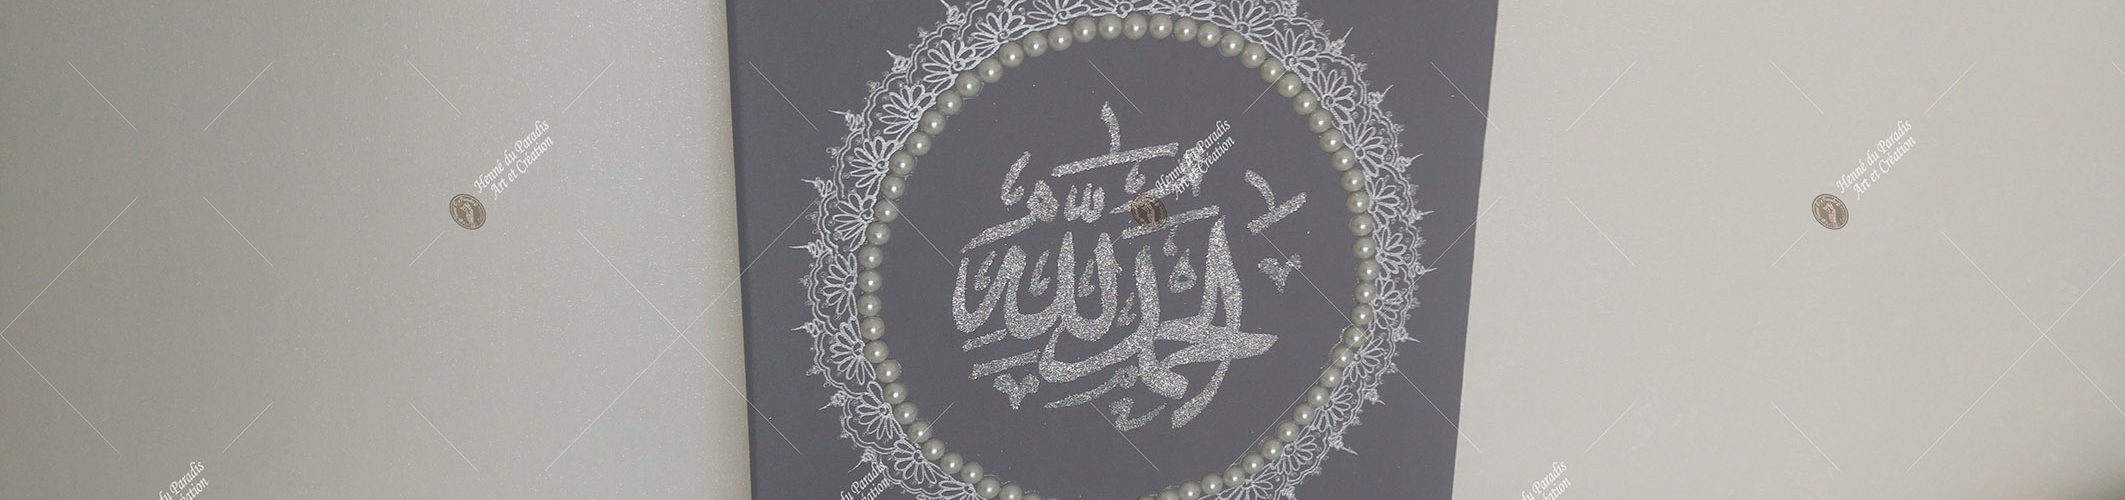 الحمد لله
Henné du Paradis
Art et Création
Henné du Paradis
Art et Création
Henné du Paradis
Art et Création
du Paradis
Création
du Paradis
Création
du Paradis
Création